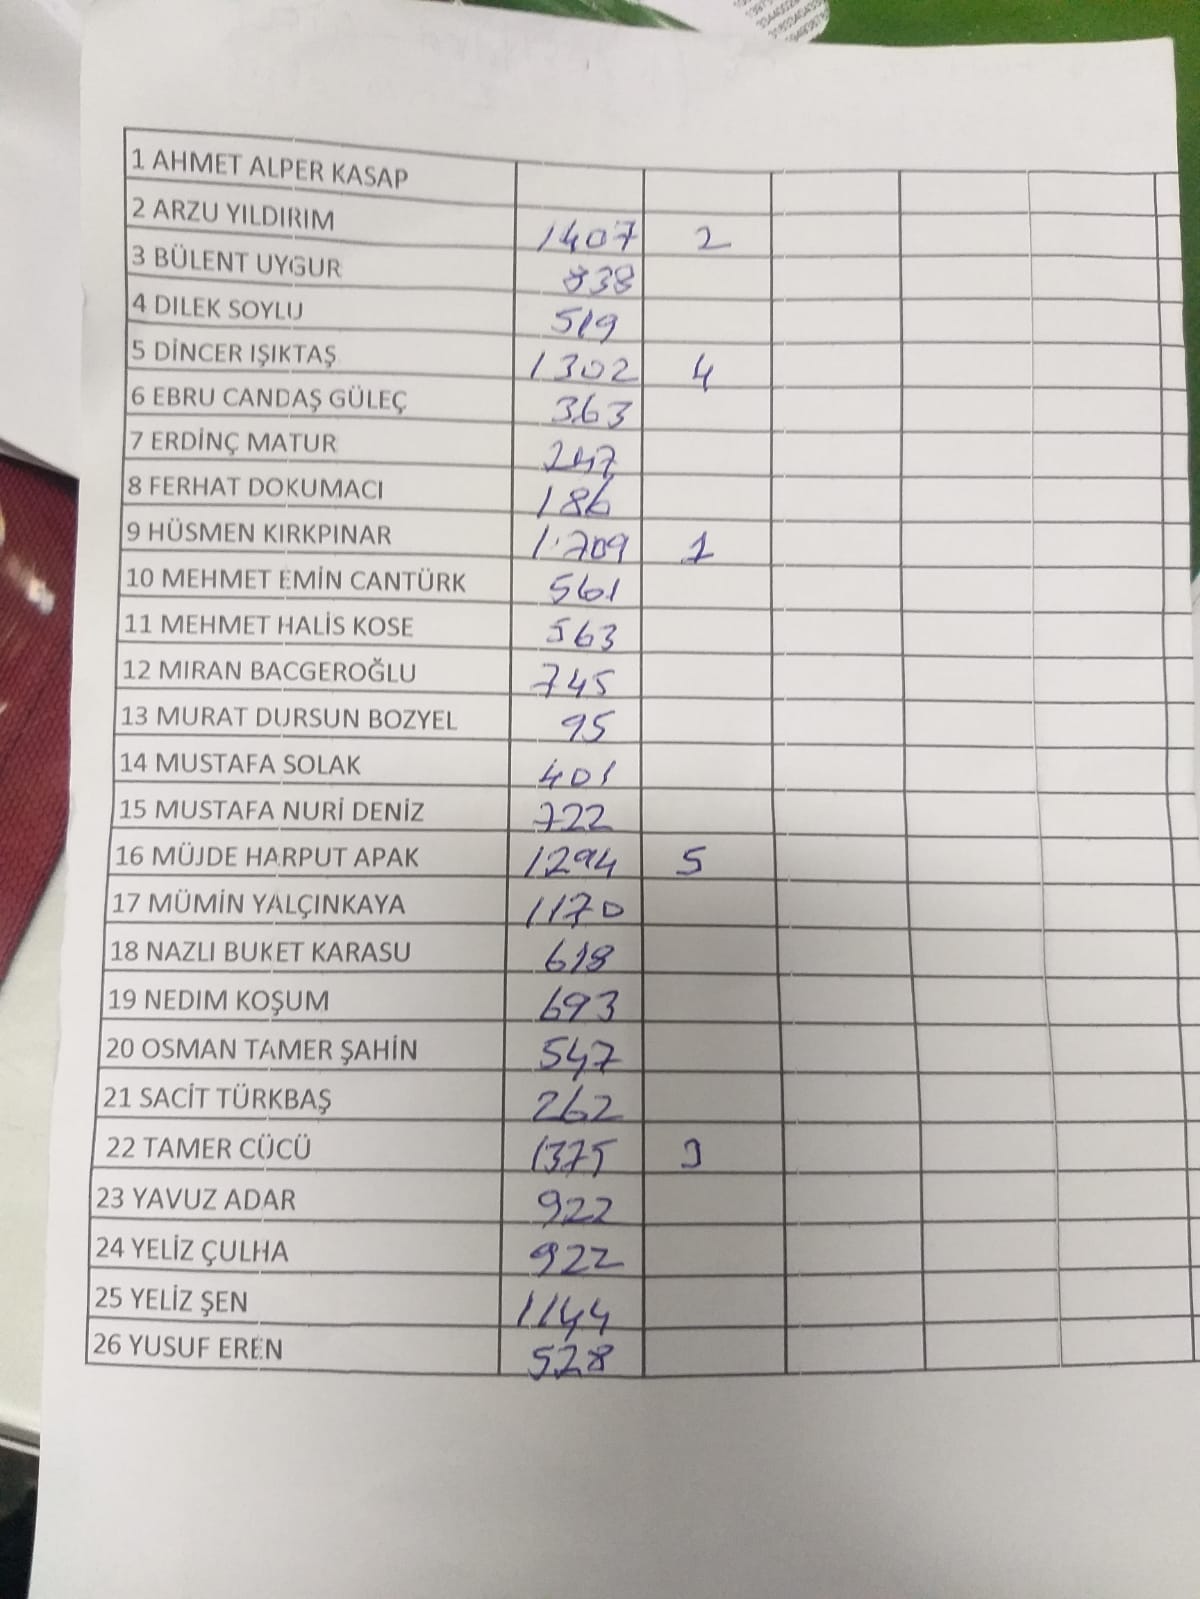 1 AHMET ALPER KASAP
2 ARZU YILDIRIM 1407 2
3 BÜLENT UYGUR 838
4 DILEK SOYLU 519
5 DİNCER IŞIKTAŞ 1302 4
6 EBRU CANDAŞ GÜLEÇ 363
7 ERDİNÇ MATUR 247
8 FERHAT DOKUMACI 186
9 HÜSMEN KIRKPINAR 1.709 1
10 MEHMET EMİN CANTÜRK 561
11 MEHMET HALİS KOSE 563
12 MIRAN BACGEROĞLU 745
13 MURAT DURSUN BOZYEL 95
14 MUSTAFA SOLAK 401
15 MUSTAFA NURİ DENİZ 722
16 MÜJDE HARPUT APAK 1294 5
17 MÜMİN YALÇINKAYA 1170
18 NAZLI BUKET KARASU 618
19 NEDIM KOŞUM 693
20 OSMAN TAMER ŞAHİN 547
21 SACİT TÜRKBAŞ 262
22 TAMER CÜCÜ 1375 3
23 YAVUZ ADAR 922
24 YELİZ ÇULHA 922
25 YELİZ ŞEN 1144
26 YUSUF EREN 528